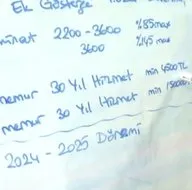 Ek Gösterge
2200-3600 %85 max
3600 %145 max
memur 30 Yıl Hizmet min 4500 TL
memur 30 Yıl Hizmet min
2024-2025 Dönemi